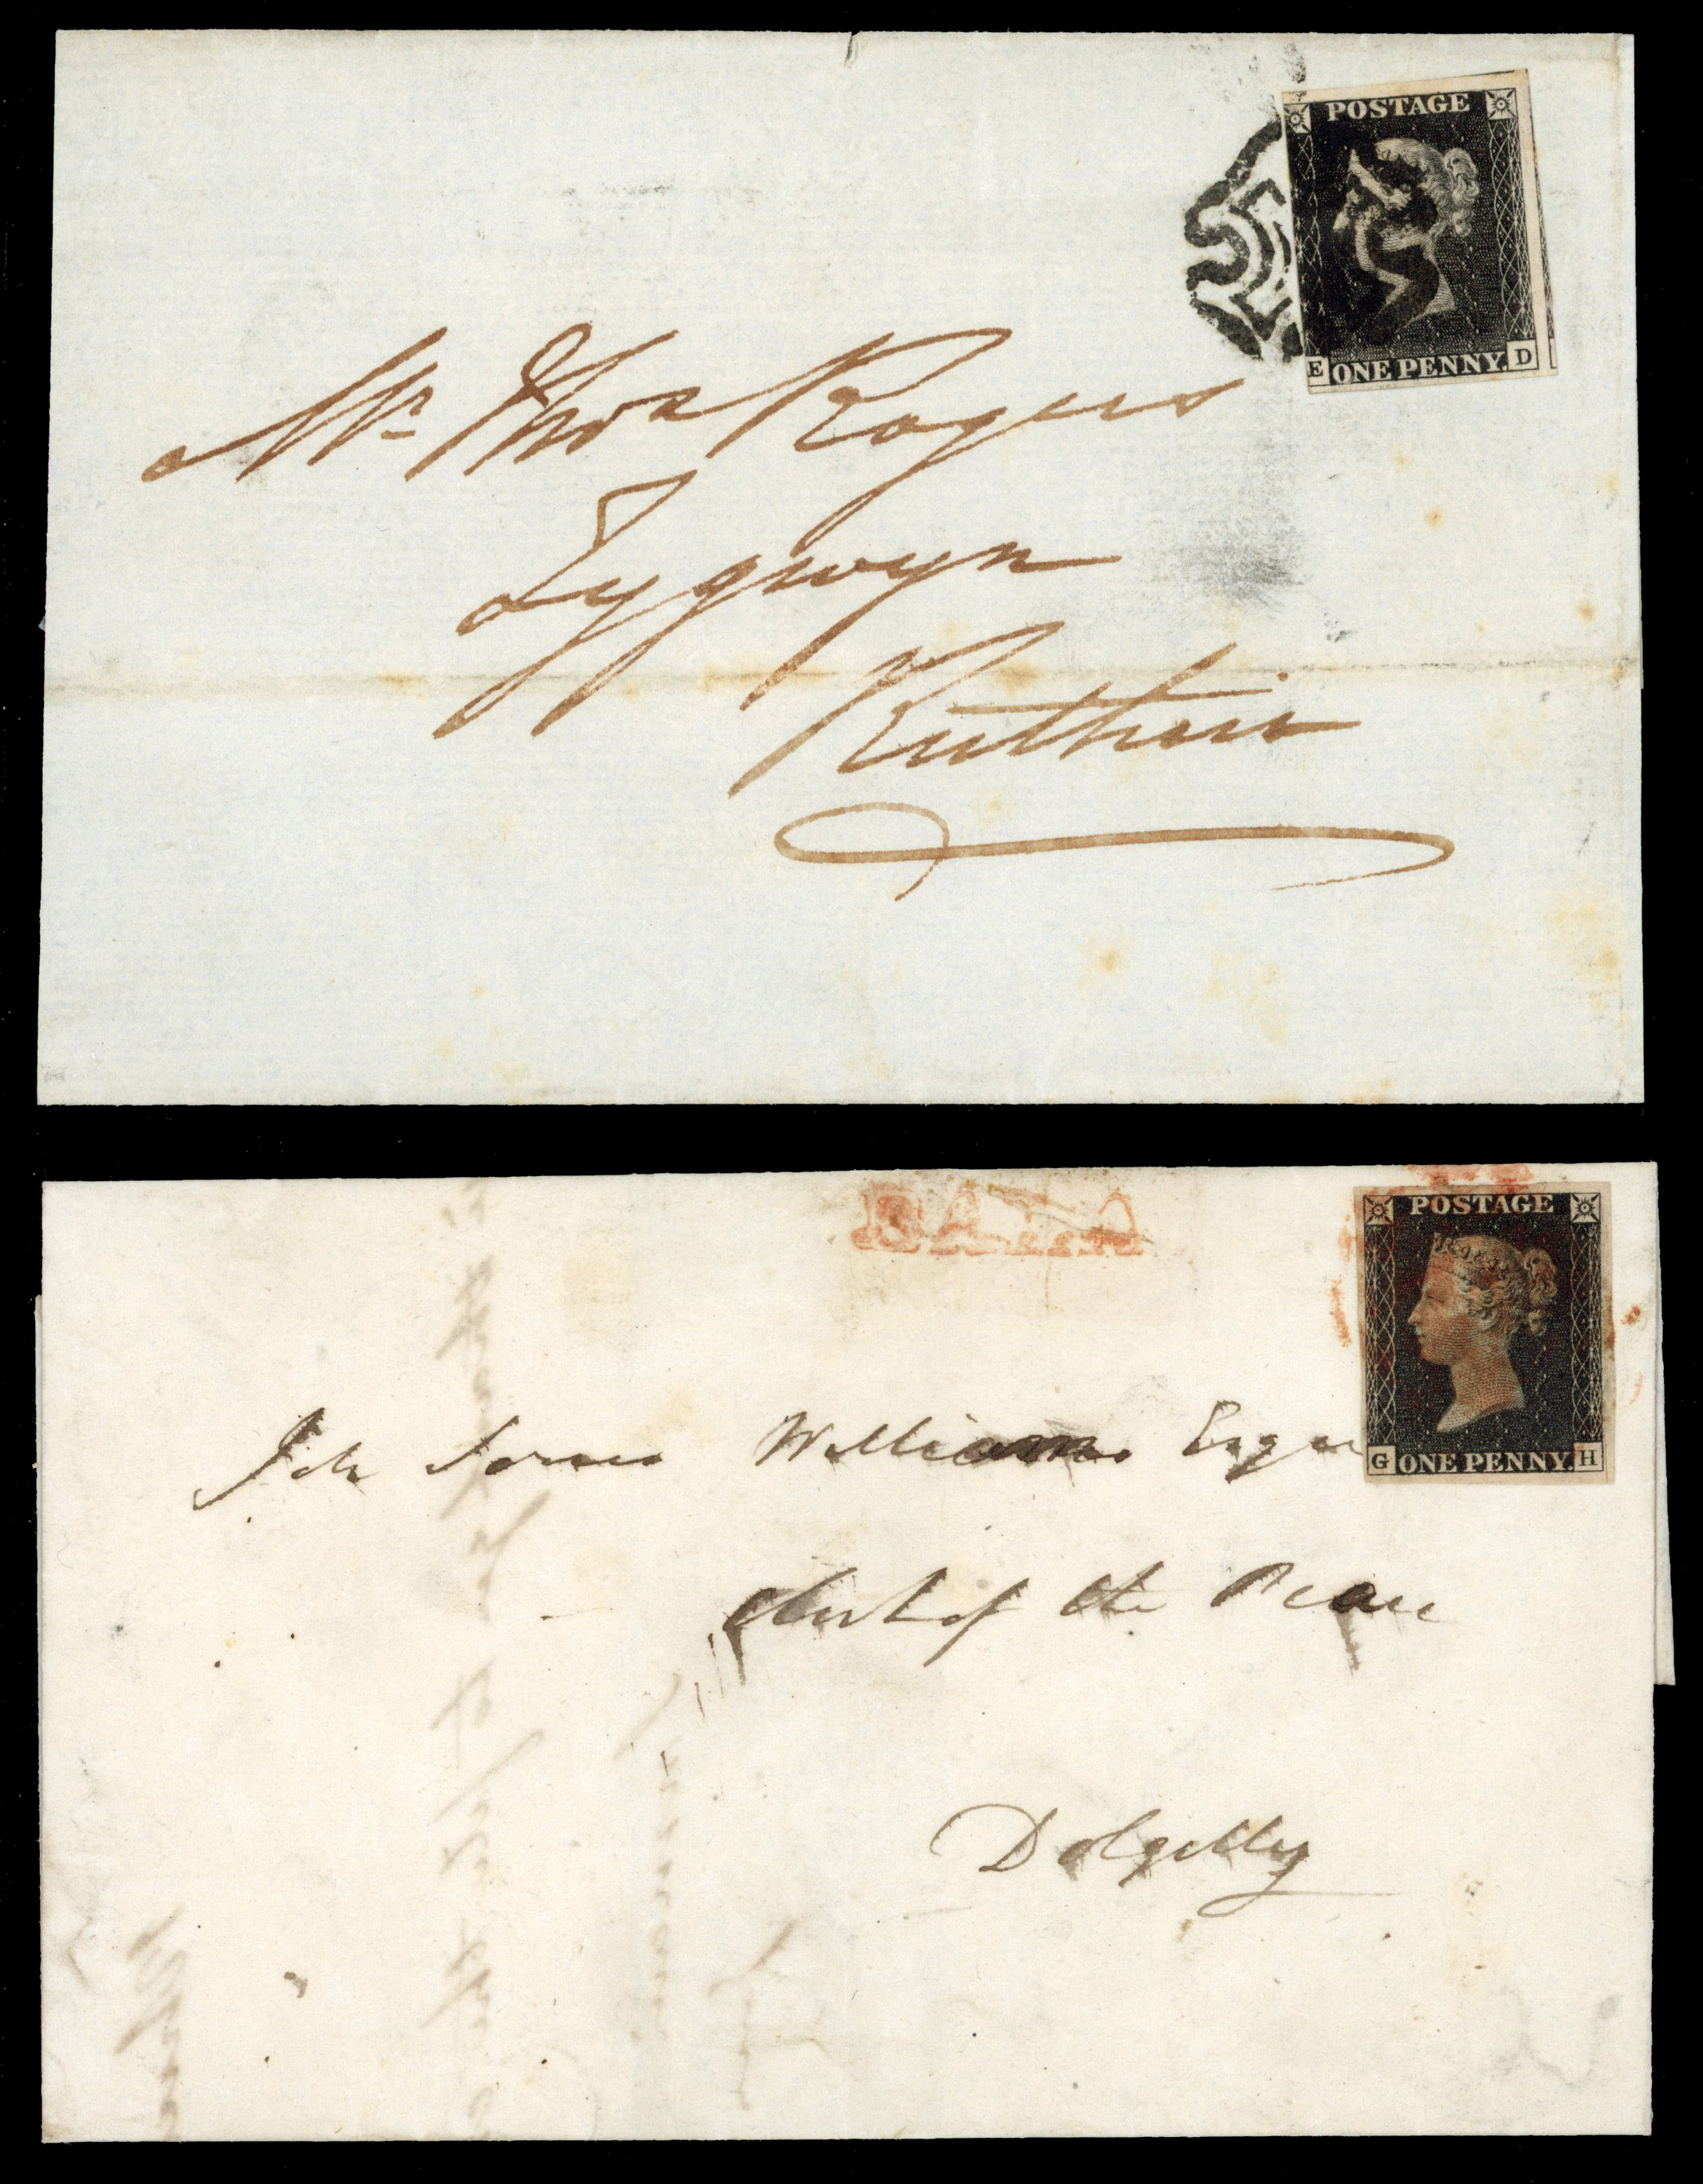 POSTAGE
E ONE PENNY. D
Mr. Thos Rogers
Tygwyn
Ruthin
BALA
POSTAGE
G ONE PENNY. H
Williams Esqre
Clerk of the Peace
Dolgelly